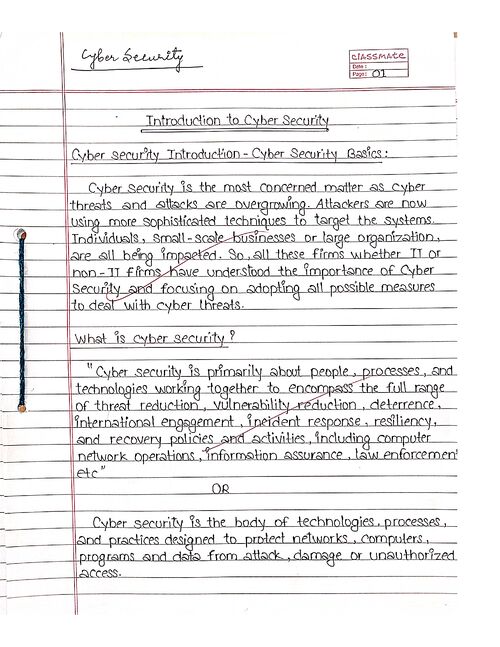 Cyber Security
classmate
Date :
Page : 01
Introduction to Cyber Security
Cyber security Introduction - Cyber Security Basics :
Cyber security is the most concerned matter as cyber
threats and attacks are overgrowing. Attackers are now
using more sophisticated techniques to target the systems.
Individuals, small-scale businesses or large organization,
are all being impacted. So, all these firms whether IT or
non-IT firms have understood the importance of Cyber
Security and focusing on adopting all possible measures
to deal with cyber threats.
What is cyber security ?
"Cyber security is primarily about people, processes, and
technologies working together to encompass the full range
of threat reduction, vulnerability reduction, deterrence,
international engagement, incident response, resiliency,
and recovery policies and activities, including computer
network operations, information assurance, law enforcemen
etc"
OR
Cyber security is the body of technologies, processes,
and practices designed to protect networks, computers,
programs and data from attack, damage or unauthorized
access.